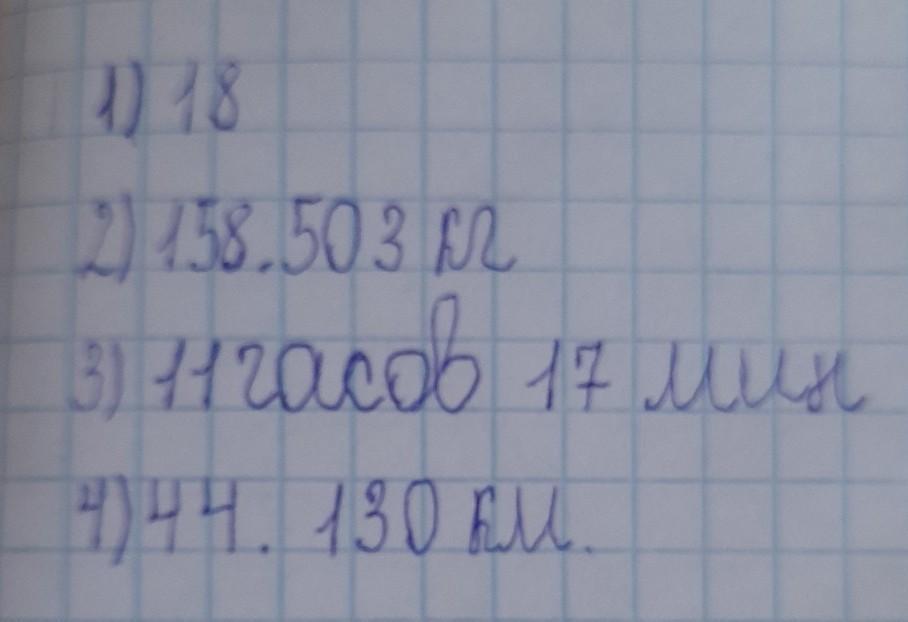 1) 18
2) 158.503 кг
3) 11 часов 17 мин
4) 44. 130 км.